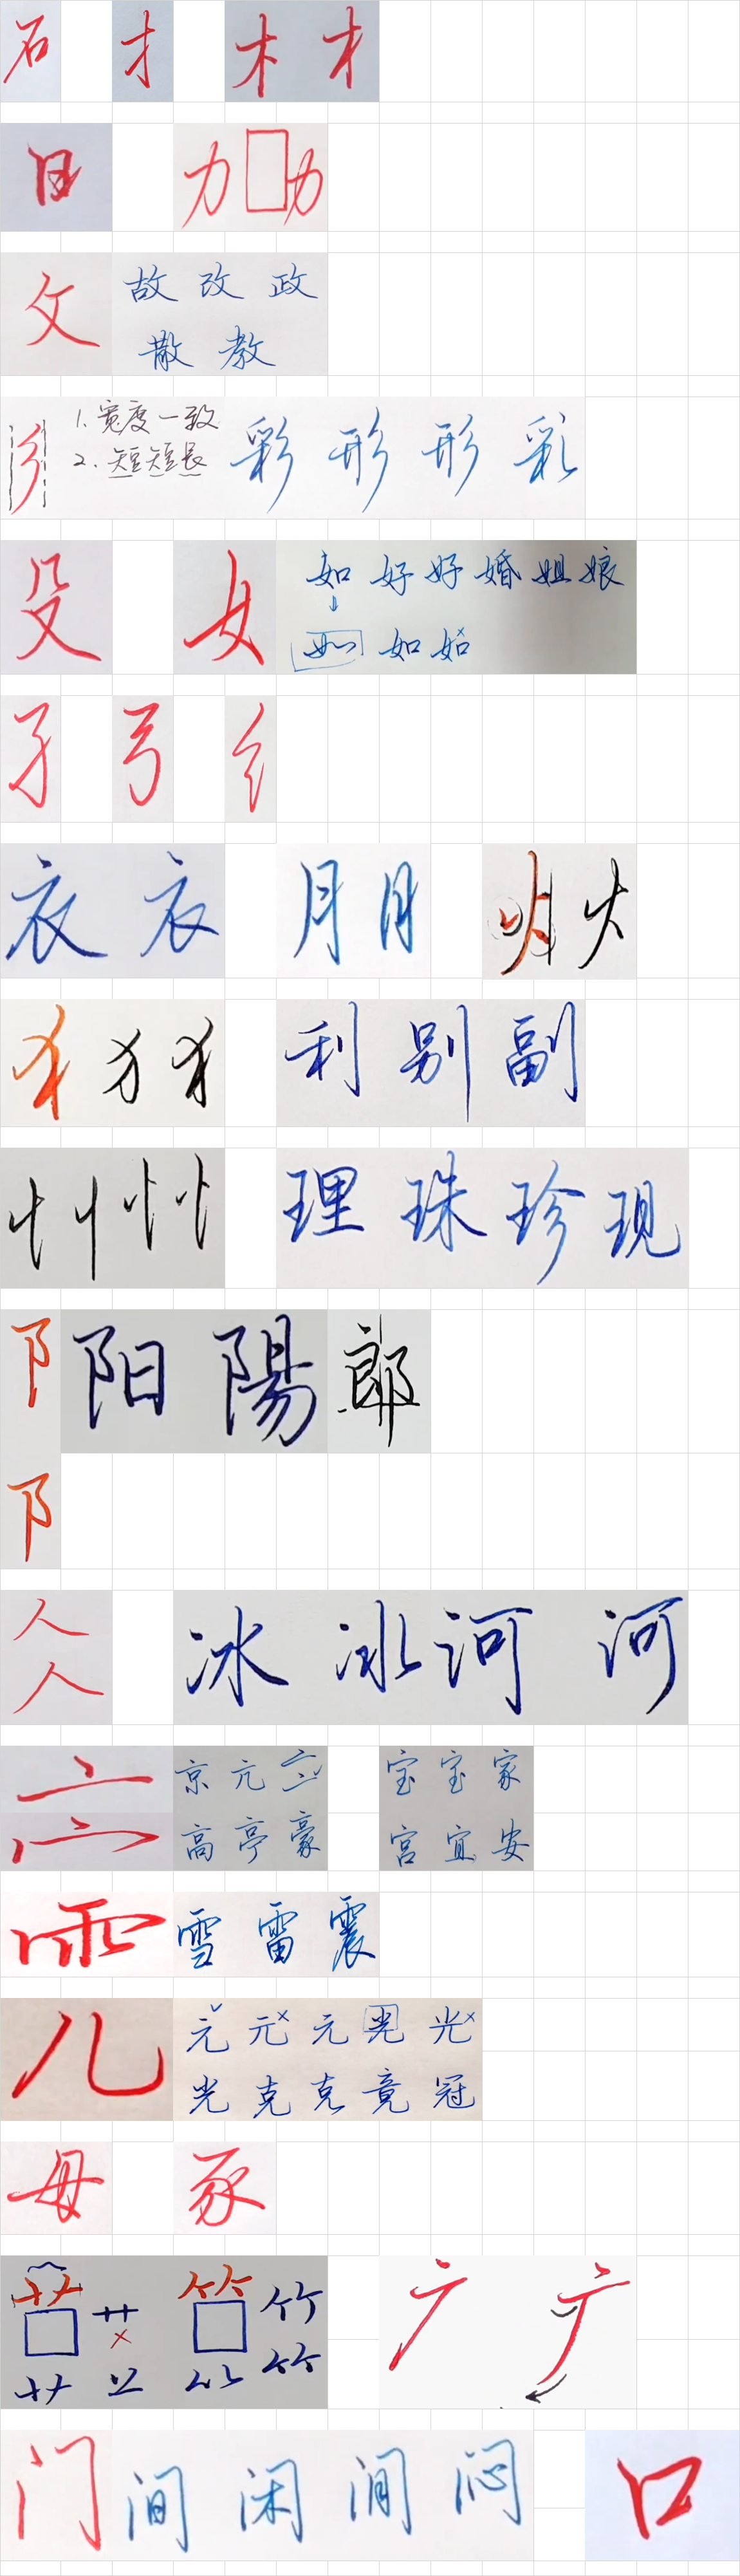 石 扌 木 木
日 力 力
攵 故 改 政
散 教
彡 1. 宽度一致
2. 短短长
彩 形 形 彩
殳 女 如 好 好 婚 姐 娘
如 如 如
孑 弓 纟
衣 衣 月 月 火 火
犭 犭 犭 利 别 副
忄 忄 忄 忄 理 珠 珍 现
阝 阳 陽 郎
阝
人 冰 冰 河 河
人
亠 京 亢 亠 宝 宝 家
宀 高 亭 豪 宫 宜 安
雨 雪 雷 震
儿 元 元 元 光 光
光 克 克 竟 冠
母 豕
艹 艹 竹 竹 广 广
艹 竹 竹
门 间 闲 间 闷 口